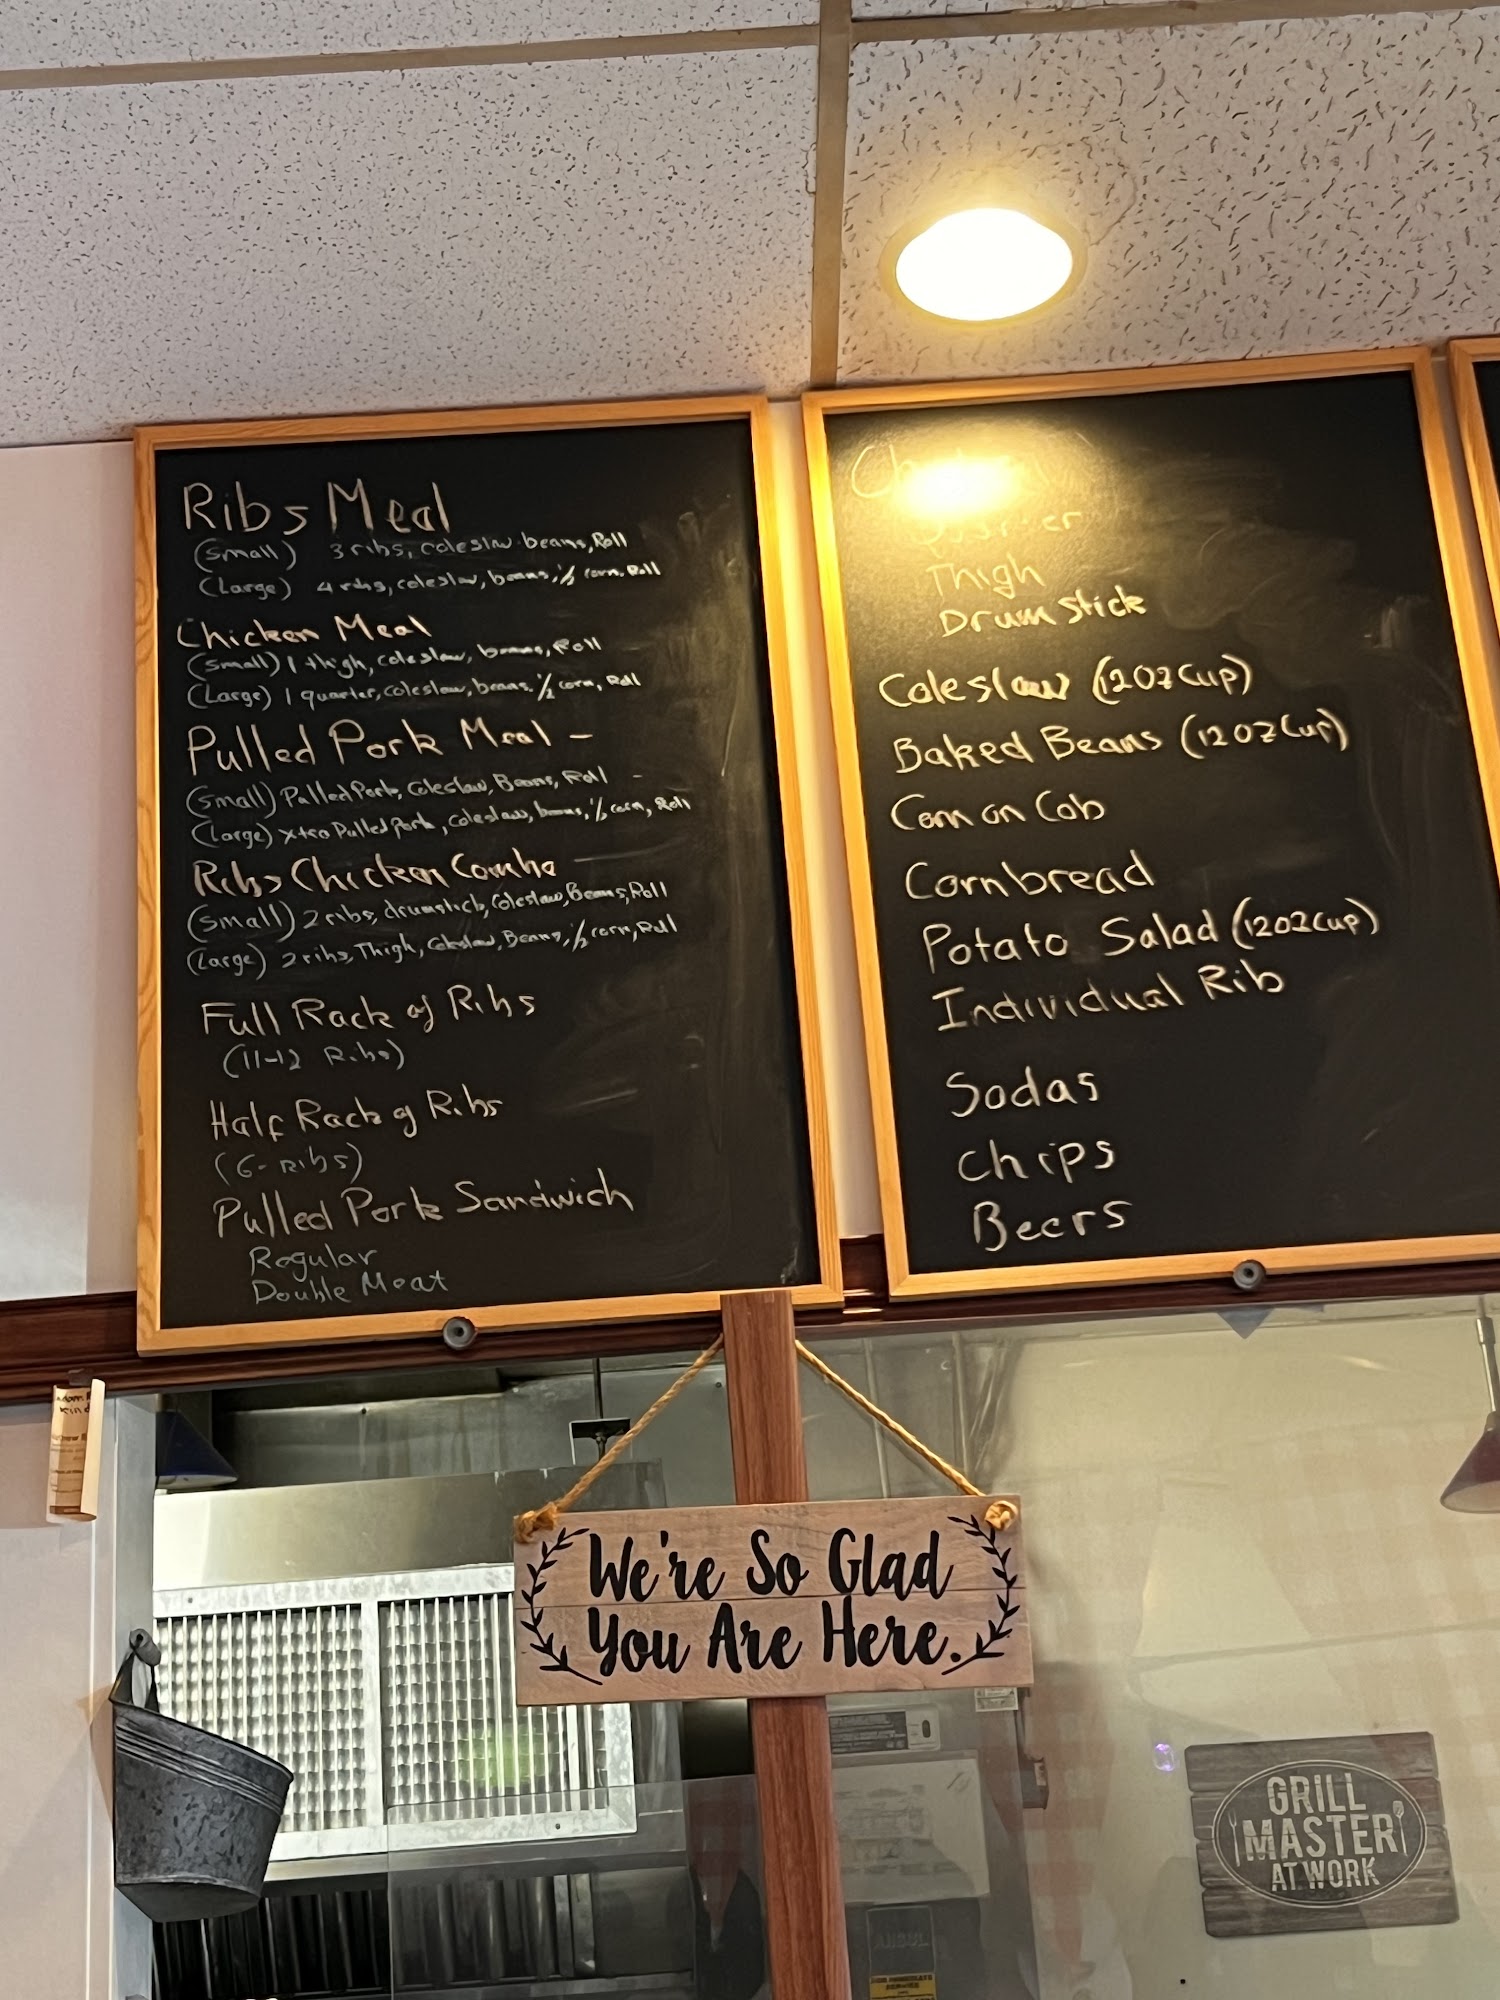 Ribs Meal
(Small) 3 ribs, coleslaw beans, Roll
(Large) 4 ribs, coleslaw, beans, 1/2 corn, Roll
Chicken Meal
(Small) 1 thigh, coleslaw, beans, Roll
(Large) 1 quarter, coleslaw, beans, 1/2 corn, Roll
Pulled Pork Meal -
(Small) Pulled Pork, Coleslaw, Beans, Roll -
(Large) xtra Pulled Pork, coleslaw, beans, 1/2 corn, Roll
Ribs Chicken Combo -
(Small) 2 ribs, drumstick, Coleslaw, Beans, Roll
(Large) 2 ribs, Thigh, Coleslaw, Beans, 1/2 corn, Roll
Full Rack of Ribs
(11-12 Ribs)
Half Rack of Ribs
(6-Ribs)
Pulled Pork Sandwich
Regular
Double Meat
Quarter
Thigh
Drumstick
Coleslaw (12oz Cup)
Baked Beans (12oz Cup)
Corn on Cob
Cornbread
Potato Salad (12oz Cup)
Individual Rib
Sodas
Chips
Beers
We're So Glad
You Are Here.
GRILL
MASTER
AT WORK
ANSUL